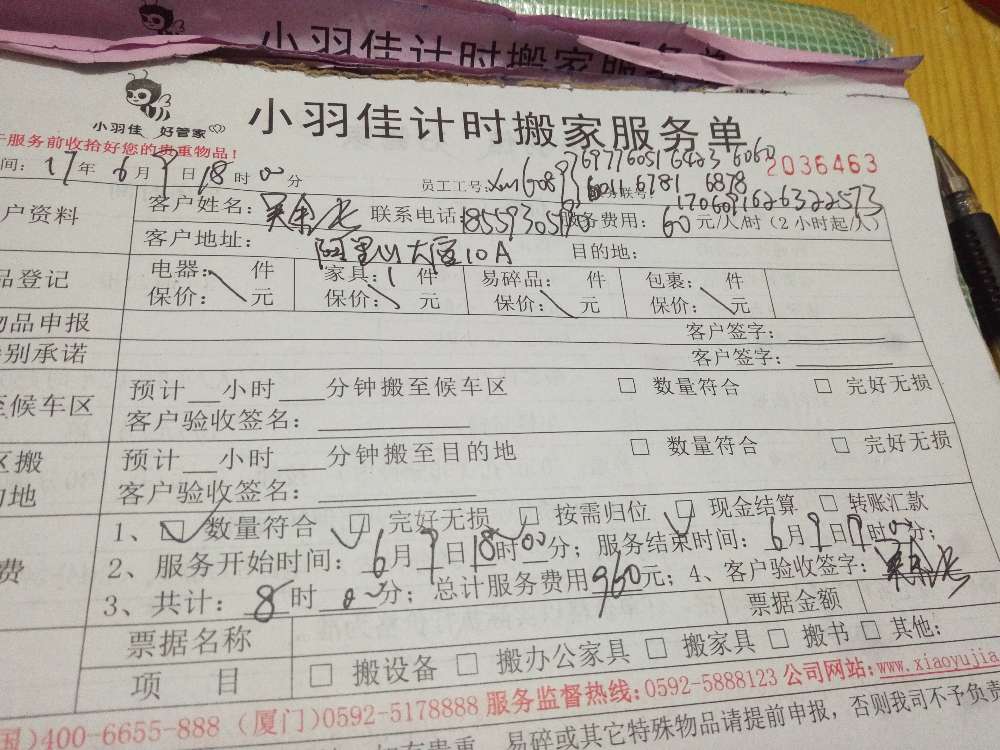 小羽佳计时搬家服务单
小羽佳 好管家
小羽佳计时搬家服务单
服务前收拾好您的贵重物品!
2036463
间: 17年 6月 9日 18时 00分 员工工号:
户资料 客户姓名: 联系电话: 服务费用: 60元/人/时(2小时起/人)
客户地址: 阿里山大厦10A 目的地:
品登记 电器: 件 家具: 1件 易碎品: 件 包裹: 件
保价: 元 保价: 元 保价: 元 保价: 元
物品申报 客户签字:
特别承诺 客户签字:
至候车区 预计 小时 分钟搬至候车区 □ 数量符合 □ 完好无损
客户验收签名:
区搬 预计 小时 分钟搬至目的地 □ 数量符合 □ 完好无损
的地 客户验收签名:
1、☑ 数量符合 ☑ 完好无损 ☑ 按需归位 ☑ 现金结算 □ 转账汇款
费 2、服务开始时间: 6月9日18时00分; 服务结束时间: 6月9日 时00分;
3、共计: 8时00分; 总计服务费用960元; 4、客户验收签字:
票据名称 票据金额
项 目 □ 搬设备 □ 搬办公家具 □ 搬家具 □ 搬书 □ 其他:
国)400-6655-888 (厦门)0592-5178888 服务监督热线:0592-5888123 公司网站:www.xiaoyujia
易碎或其它特殊物品请提前申报, 否则我司不予负责